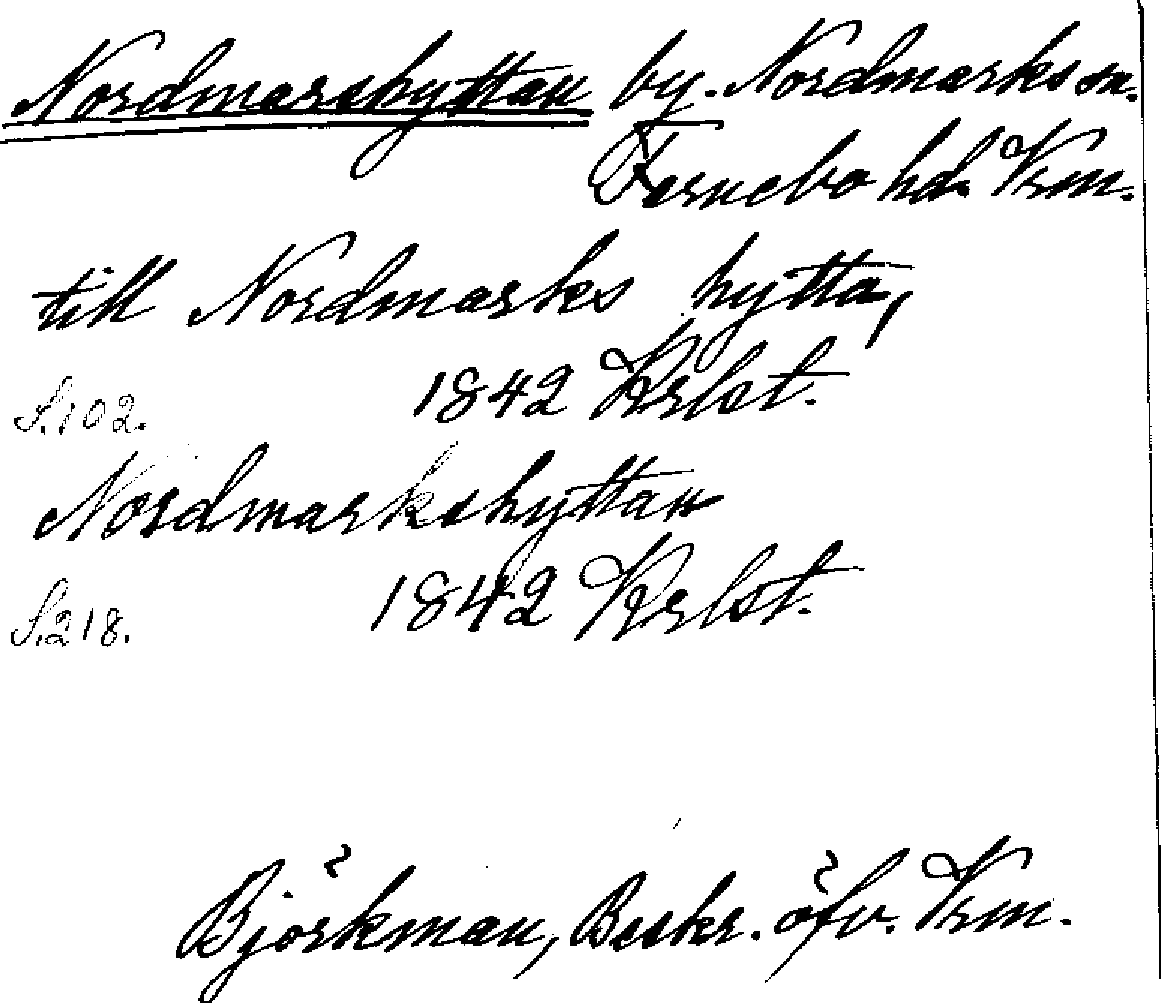 Nordmarshyttan by. Nordmarks sn.
Fernebo hd. Vrm.
till Nordmarks hytta,
S.102. 1842 Krlst.
Nordmarkshyttan
S.218. 1842 Krlst.
Björkman, Beskr. öfv. Vrm.